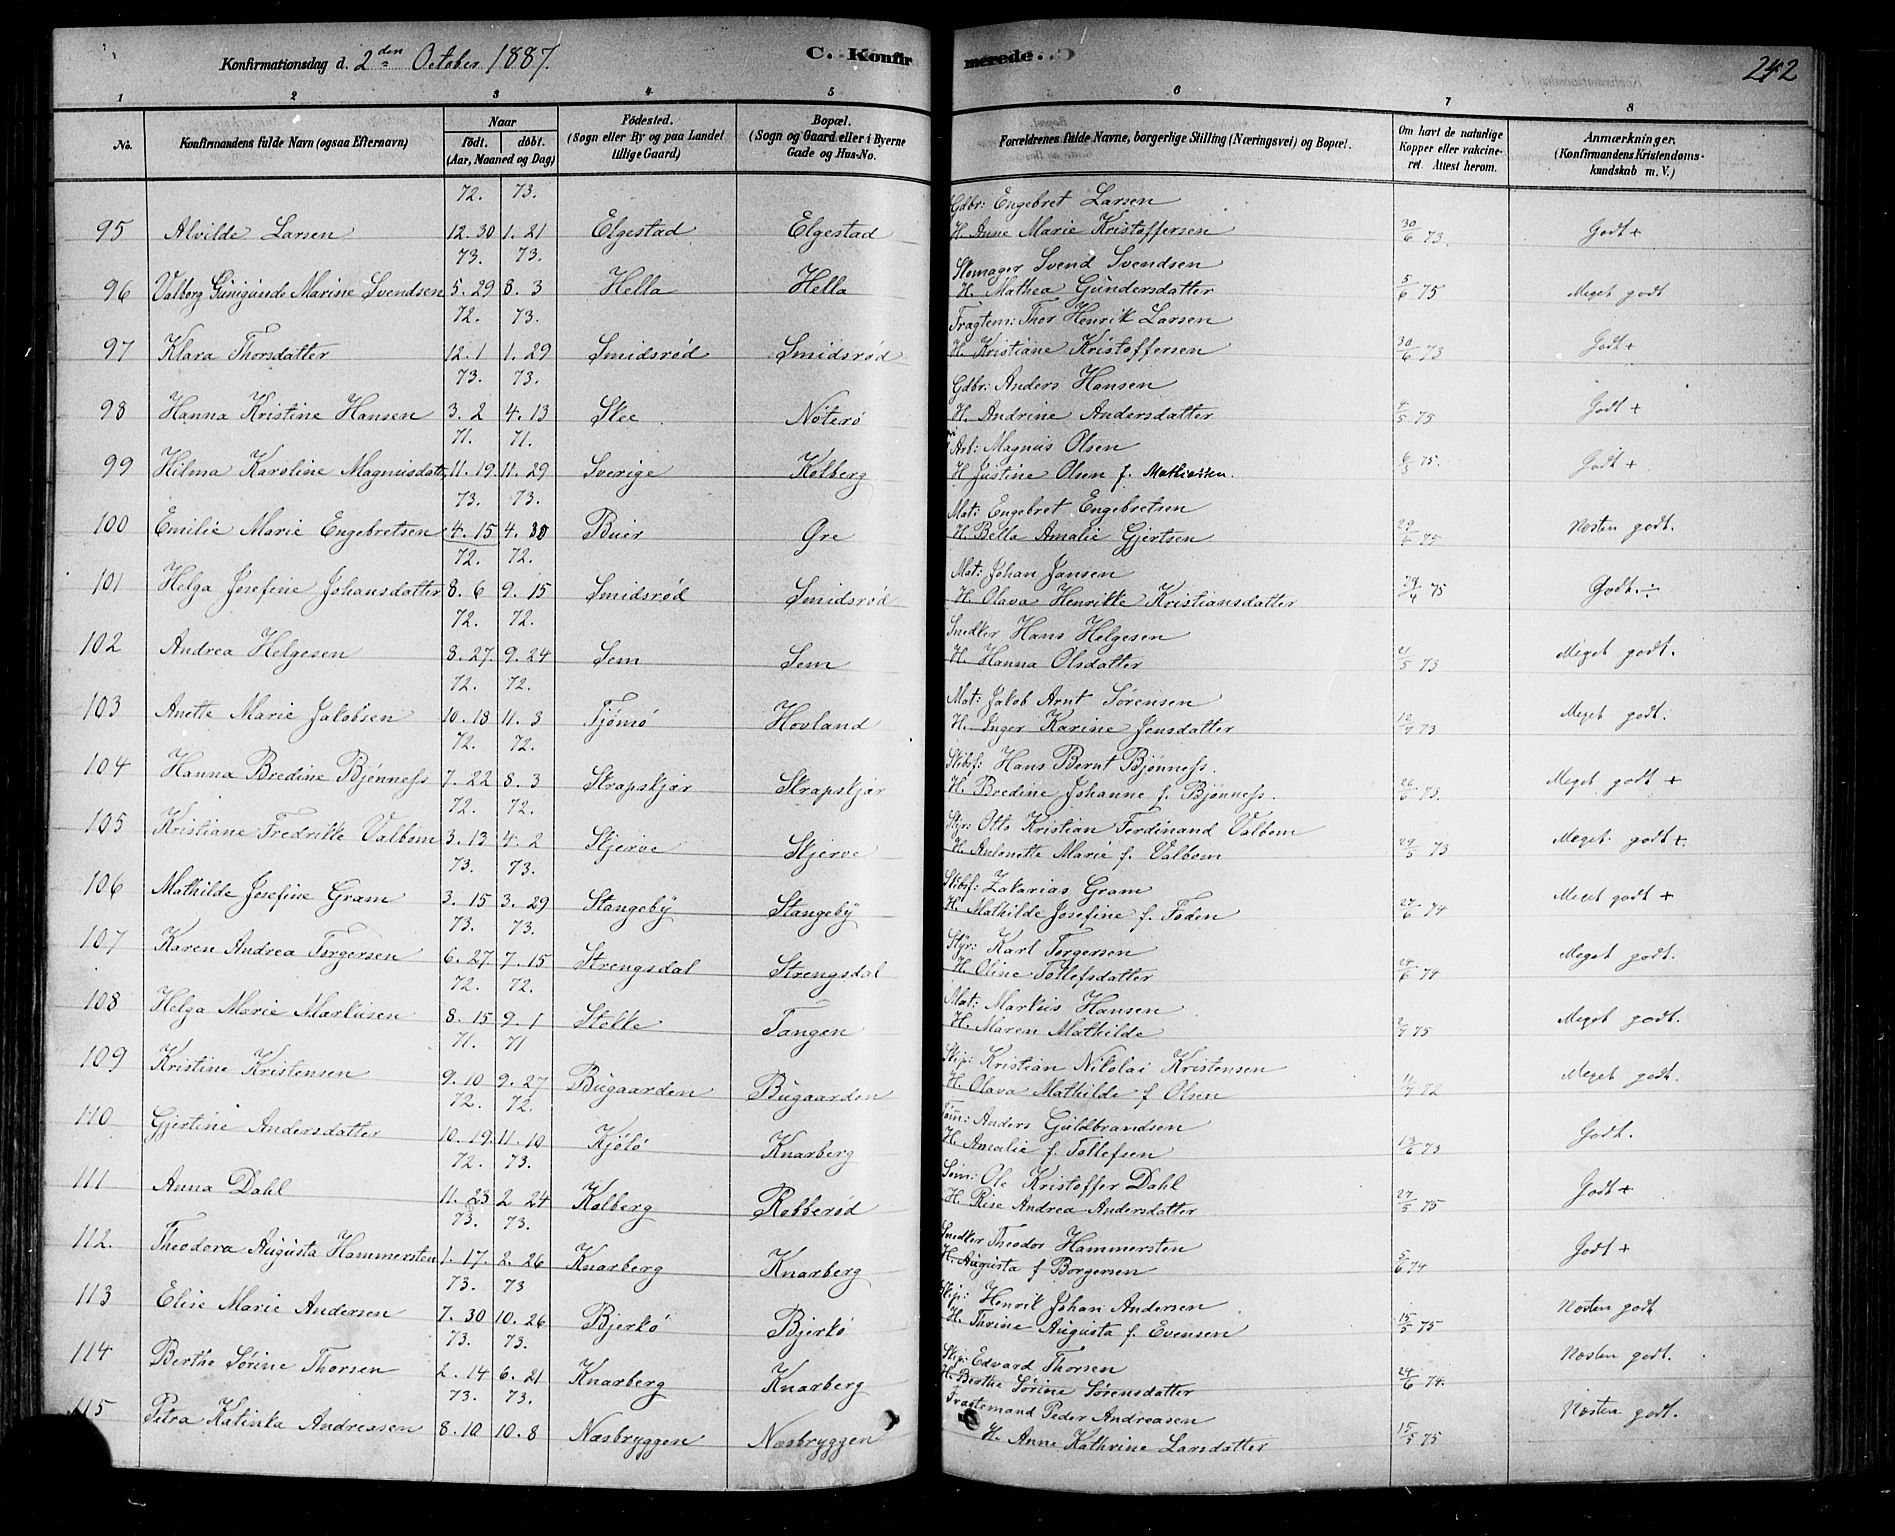 Konfirmationsdag d. 2den October 1887. C. Konfirmerede. 242
1 2 3 4 5 6 7 8
No. Konfirmandens fulde Navn (ogsaa Efternavn) Naar født. døbt. (Aar, Maaned og Dag) Fødested. (Sogn eller By og paa Landet tillige Gaard) Bopæl. (Sogn og Gaard eller i Byerne Gade og Hus-No. Forældrenes fulde Navne, borgerlige Stilling (Næringsvei) og Bopæl. Om havt de naturlige Kopper eller vakcineret. Attest herom. Anmærkninger. (Konfirmandens Kristendomskundskab m. V.)
72. 73. Gdbr: Engebret Larsen
95 Alvilde Larsen 12. 30 1. 21 Elgestad Elgestad H. Anne Marie Kristoffersen 30/6 73. Godt +
73. 73. Stenager Svend Svendsen
96 Valborg Gunigunde Marine Svendsen 5. 29 8. 3 Hella Hella H. Mathea Gundersdatter 5/6 75 Meget godt
72. 73. Fragtem: Thor Henrik Larsen
97 Klara Thorsdatter 12. 1 1. 29 Smidsrød Smidsrød H. Kristiane Kristoffersen 30/6 73 Godt +
73. 73. Gdbr: Anders Hansen
98 Hanna Kristine Hansen 3. 2 4. 13 Skee Nøterø H. Andrine Andersdatter /5 75 Godt +
71. 71. Arb: Magnus Olsen
99 Hilma Karoline Magnusdatt 11. 19. 11. 29 Sverige Kolberg H Justine Olsen f. Mathiassen. 6/5 75. Godt +
73. 73. Mat: Engebret Engebretsen
100 Emilie Marie Engebretsen 4. 15 4. 30 Buer Øre H. Bella Amalie Gjertsen 29/6 75 Næsten godt.
72. 72. Mat: Johan Jansen
101 Helga Josefine Johansdatter 8. 6 9. 15 Smidsrød Smidsrød H. Olava Henrikke Kristiansdatter 29/4 75 Godt. ÷
72. 72. Snedker Hans Helgesen
102 Andrea Helgesen 8. 27. 9. 24 Sem Sem H. Hanna Olsdatter /5 73 Meget godt.
72. 72. Mat: Jakob Arnt Sørensen
103 Anette Marie Jakobsen 10. 18 11. 3 Tjømø Hovland H. Inger Karine Jensdatter 73 Meget godt.
72. 72. Skibsf: Hans Bernt Bjønness.
104 Hanna Bredine Bjønness 7. 22 8. 3 Skrapskjær Skrapskjær H. Bredine Johanne f. Bjønness. 26/6 73. Meget godt +
72. 72. Styr: Otto Kristian Ferdinand Valbom
105 Kristiane Fredrikke Valbom 3. 13 4. 2 Skjerve Skjerve H. Antonette Marie f. Valbom 29/5 73 Meget godt +
73. 73. Skibsf: Zakarias Gram
106 Mathilde Josefine Gram 3. 15 3. 29 Stangeby Stangeby H. Mathilde Josefine f. Foden 27/6 74 Meget godt +
73. 73. Styr: Karl Torgersen
107 Karen Andrea Torgersen 6. 27 7. 15 Strengsdal Strengsdal H. Oline Tollefsdatter 24/6 74 Meget godt.
72. 72. Mat: Markus Hansen
108 Helga Marie Markusen 8. 15 9. 1 Stokke Tangen H. Maren Mathilde 75 Meget godt.
71. 71 Skip: Kristian Nikolai Kristensen
109 Kristine Kristensen 9. 10 9. 27 Bugaarden Bugaarden H. Olava Mathilde f Olsen 72 Meget godt.
72. 72. Tøm: Anders Guldbrandsen
110 Gjertine Andersdatter 10. 19. 11. 10 Kjølø Knarberg H. Amalie f. Tollefsen 13/6 73 Godt.
72. 73. Sem: Ole Kristoffer Dahl
111 Anna Dahl 11. 23 2. 24 Kolberg Robberød H. Rise Andrea Andersdatter 27/5 75 Godt +
73. 73. Snedker Theodor Hammersten
112. Theodora Augusta Hammersten 1. 17. 2. 26 Knarberg Knarberg H. Augusta f Borgersen 5/6 74 Godt +
73. 73 Skip: Henrik Johan Andersen
113 Elise Marie Andersen 7. 30 10. 26 Bjerkø Bjerkø H. Thrine Augusta f. Evensen 15/5 75 Næsten godt
73. 73. Skip: Edvard Thorsen
114 Berthe Sørine Thorsen 2. 14 6. 21 Knarberg Knarberg H. Berthe Sørine Sørensdatter 24/6 74. Næsten godt.
73. 73. Fragtemand Peder Andreasen
115 Petra Katinka Andreasen 8. 10 10. 8 Næsbryggen Næsbryggen H. Anne Kathrine Larsdatter 15/5 75 Næsten godt.